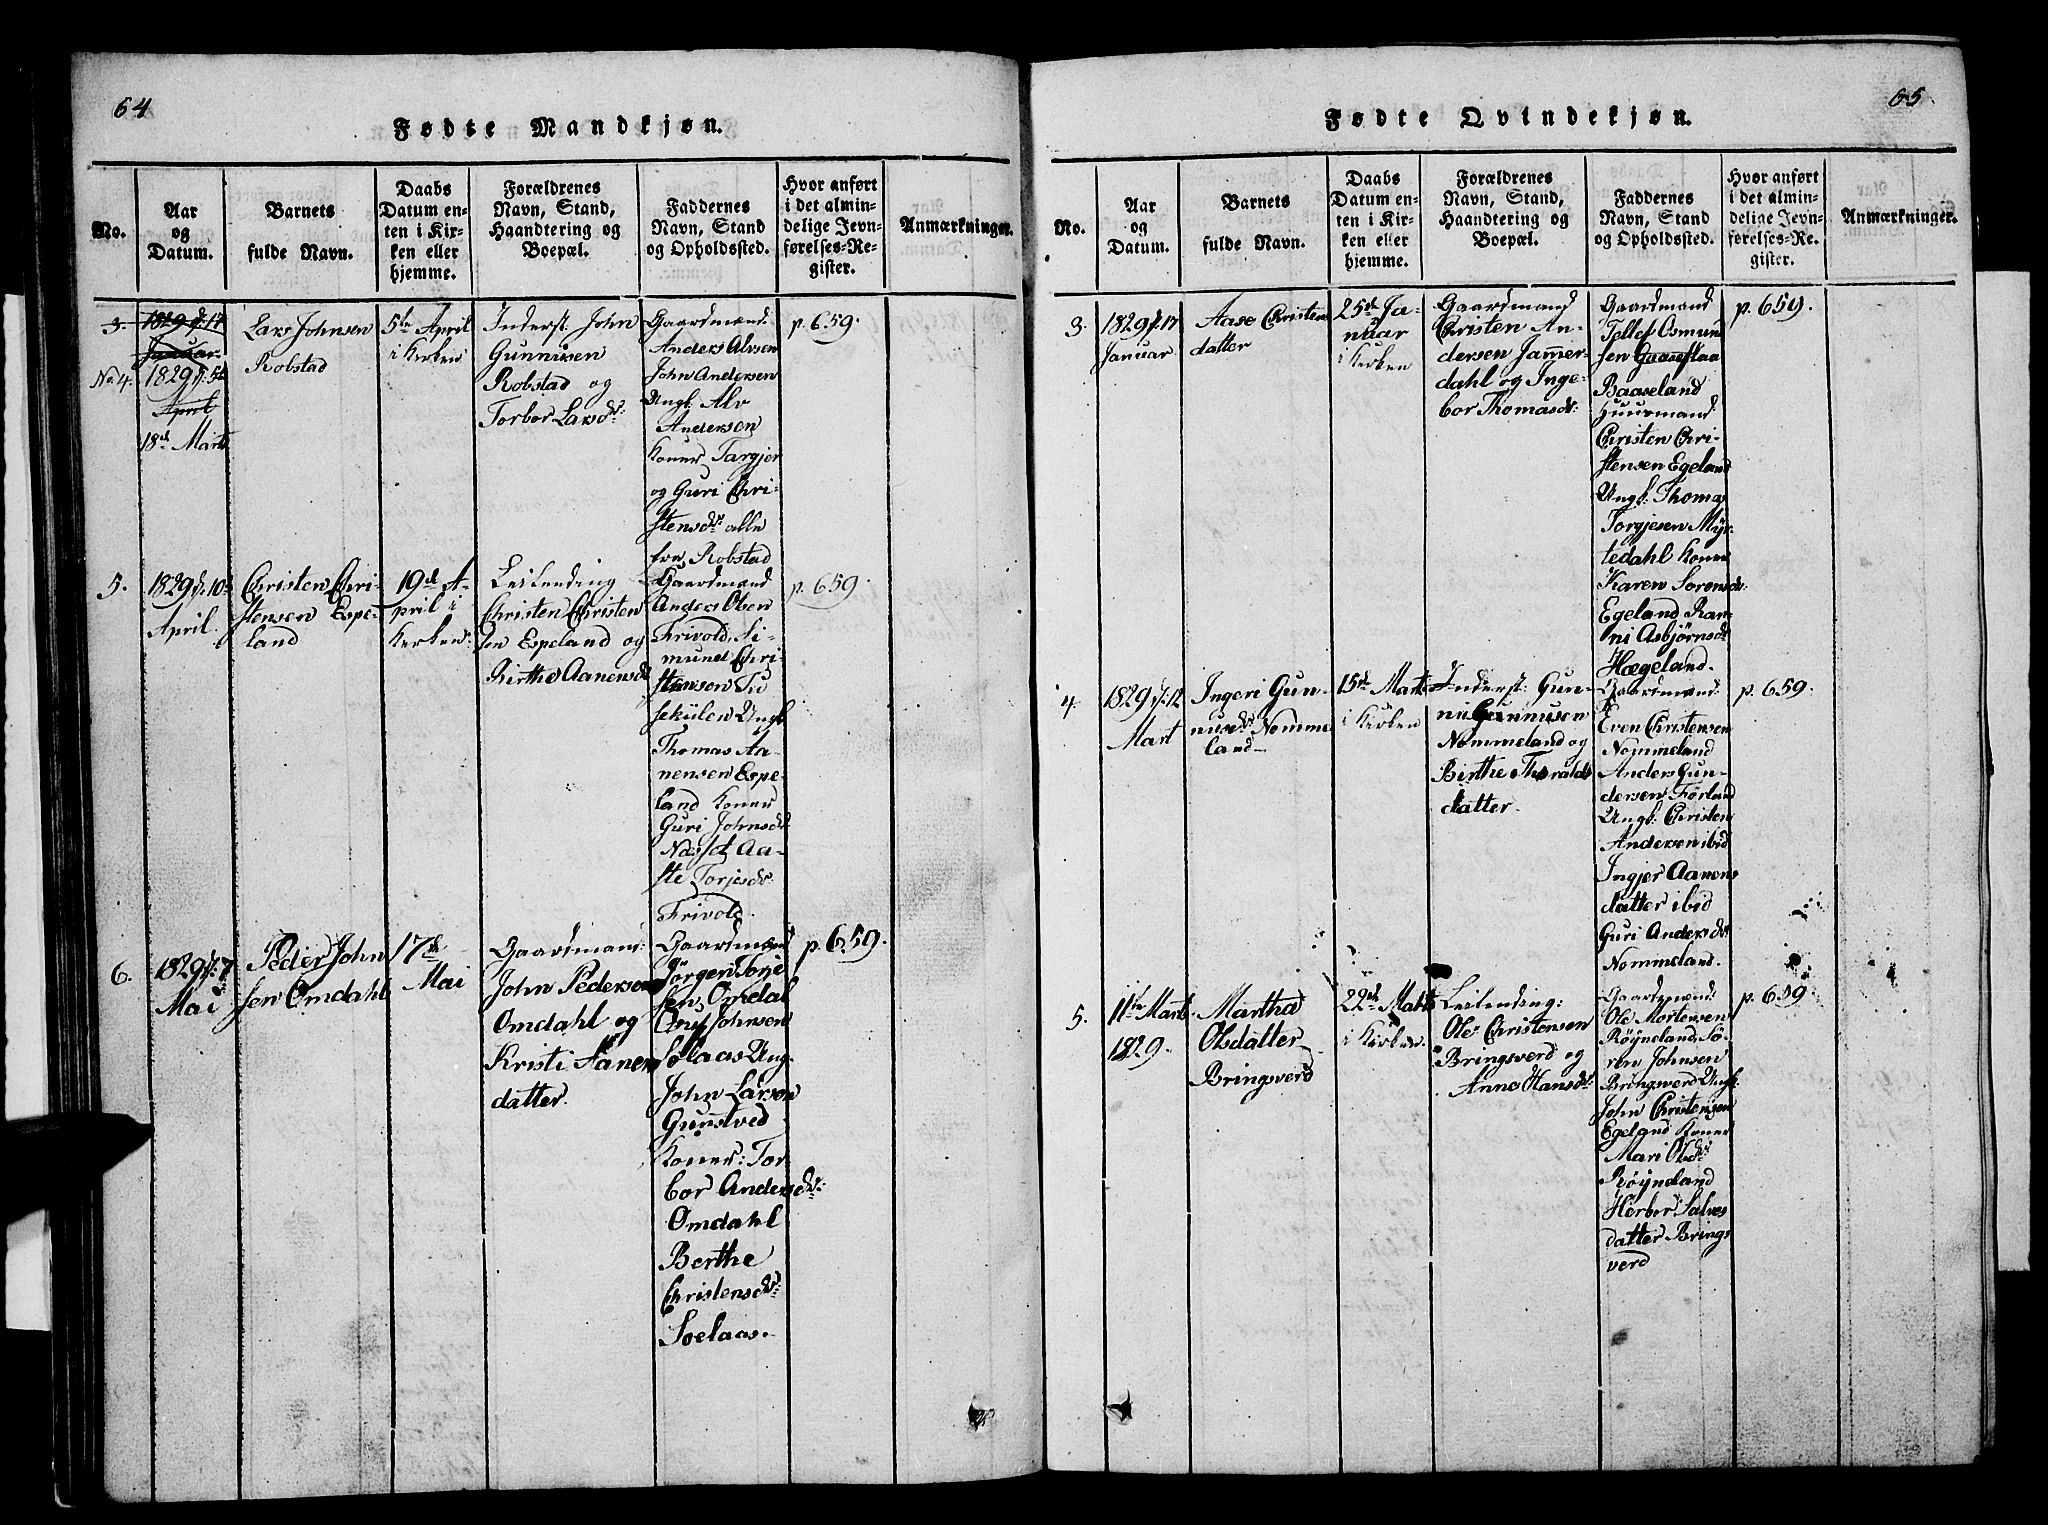 64
Fødte Mandkjøn.
No.
Aar
og
Datum.
Barnets
fulde Navn.
Daabs
Datum en-
ten i Kir-
ken eller
hjemme.
Forældrenes
Navn, Stand,
Haandtering og
Boepæl.
Faddernes
Navn, Stand
og Opholdssted.
Hvor anført
i det almin-
delige Jevn-
førelses-Re-
gister.
Anmærkninger.
3.
1829 d: 17
Januar
No 4.
1829 d: 5te
April
18de Marts
Lars Johnsen
Robstad
5te April
i Kirken
Inderst: John
Gunnisen
Robstad og
Torbor Larsdr:
Gaardmænd:
Anders Alvsen
John Andersen
Ungk: Alv
Andersen
Koner Targjer
og Guri Chri-
stensdr: alle
fra Robstad
p. 659.
5.
1829 d: 10de
April.
Christen Chri-
stensen Espe-
land
19de A-
pril i
Kirken:
Leilending
Christen Christen
sen Espeland og
Birthe Aanensdr
Gaardmænd
Anders Olsen
Frivold, Si-
mund Chri-
stensen Tu
sekulen Ungk
Thomas Aa-
nensen Espe-
land Koner
Guri Johnsdr
Næsset Aa-
ste Torjesdr:
Frivold.
p. 659.
6.
1829 d: 7
Mai
Peder John
sen Omdahl
17de
Mai
Gaardmand:
John Pedersen
Omdahl og
Kristi Aanens
datter.
Gaardmænd
Jörgen Torje
sen Omdal
Gnuf Johnsen
Solaas Ung.
John Larsen
Gunstved
Koner: Tor-
bor Andersdr:
Omdahl
Berthe
Christensdr:
Soelaas.
p. 659.
65.
Fødte Qvindekjøn.
No.
Aar
og
Datum.
Barnets
fulde Navn.
Daabs
Datum en-
ten i Kir-
ken eller
hjemme.
Forældrenes
Navn, Stand,
Haandtering og
Boepæl.
Faddernes
Navn, Stand
og Opholdssted.
Hvor anført
i det almin-
delige Jevn-
førelses-Re-
gister.
Anmærkninger.
3.
1829 d: 17
Januar
Aase Christens
datter
25de Ja-
nuar
i Kirken
Gaardmand
Christen An-
dersen Jammer-
dahl og Inge-
bor Thomasdr:
Gaardmænd
Tellef Osmund
sen Gaaseflaa
Baaseland
Huusmand:
Christen Chri-
stensen Egeland
Ungk: Thomas
Torgjesen Myr-
tedahl Koner
Karen Sörensdr
Egeland Ran-
ni Asbjörnsdr
Hægeland.
p. 659.
4.
1829 d: 12
Mart
Ingeri Gun-
nusdr Nomme
land-
15de Marts
i Kirken
Inderst: Gun-
ni Gunnusen
Nommeland og
Birthe Thoralds
datter.
Gaardmænd:
Even Christensen
Nommeland
Anders Gun-
dersen Förland
Ungk: Christen
Andersen ibid
Ingjer Aanens
datter ibid
Guri Andersdr:
Nommeland.
p. 659.
5.
11te Marts
1829.
Martha
Olsdatter
Bringsverd
22de Marts
i Kirken.
Leilending:
Ole Christensen
Bringsverd og
Anne Hansdr:
Gaardmænd:
Ole Mortensen
Röyneland, Sö-
ren Johnsen
Bringsverd Ungk:
John Christensen
Egeland Koner
Mari Olsdr
Röyneland
Herbor Salves
datter Brings
verd
p. 659.